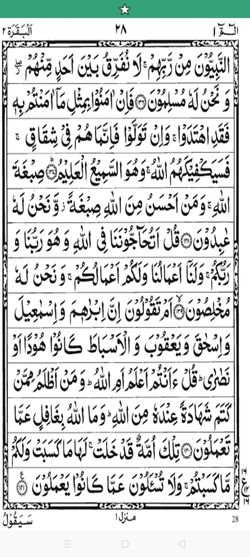 الٓمّٓ ١ ٢٨ البَقَرَة ٢
النَّبِيُّوْنَ مِنْ رَّبِّهِمْ ۚ لَا نُفَرِّقُ بَيْنَ اَحَدٍ مِّنْهُمْ ۖ
وَ نَحْنُ لَهٗ مُسْلِمُوْنَ ۝١٣٦ فَاِنْ اٰمَنُوْا بِمِثْلِ مَاۤ اٰمَنْتُمْ بِهٖ
فَقَدِ اهْتَدَوْا ۚ وَ اِنْ تَوَلَّوْا فَاِنَّمَا هُمْ فِيْ شِقَاقٍ ۚ
فَسَيَكْفِيْكَهُمُ اللّٰهُ ۚ وَ هُوَ السَّمِيْعُ الْعَلِيْمُ ۝١٣٧ صِبْغَةَ
اللّٰهِ ۚ وَ مَنْ اَحْسَنُ مِنَ اللّٰهِ صِبْغَةً ؗ وَّ نَحْنُ لَهٗ
عٰبِدُوْنَ ۝١٣٨ قُلْ اَتُحَآجُّوْنَنَا فِي اللّٰهِ وَ هُوَ رَبُّنَا وَ
رَبُّكُمْ ۚ وَ لَنَاۤ اَعْمَالُنَا وَ لَكُمْ اَعْمَالُكُمْ ۚ وَ نَحْنُ لَهٗ
مُخْلِصُوْنَ ۝١٣٩ اَمْ تَقُوْلُوْنَ اِنَّ اِبْرٰهٖمَ وَ اِسْمٰعِيْلَ
وَ اِسْحٰقَ وَ يَعْقُوْبَ وَ الْاَسْبَاطَ كَانُوْا هُوْدًا اَوْ
نَصٰرٰى ؕ قُلْ ءَاَنْتُمْ اَعْلَمُ اَمِ اللّٰهُ ؕ وَ مَنْ اَظْلَمُ مِمَّنْ
كَتَمَ شَهَادَةً عِنْدَهٗ مِنَ اللّٰهِ ؕ وَ مَا اللّٰهُ بِغَافِلٍ عَمَّا
تَعْمَلُوْنَ ۝١٤٠ تِلْكَ اُمَّةٌ قَدْ خَلَتْ ۚ لَهَا مَا كَسَبَتْ وَ لَكُمْ
مَّا كَسَبْتُمْ ۚ وَ لَا تُسْـَٔلُوْنَ عَمَّا كَانُوْا يَعْمَلُوْنَ ۝١٤١
سَيَقُوْلُ منزل ١ 28